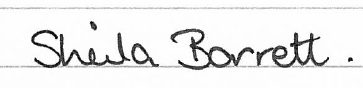 Sheila Barrett.